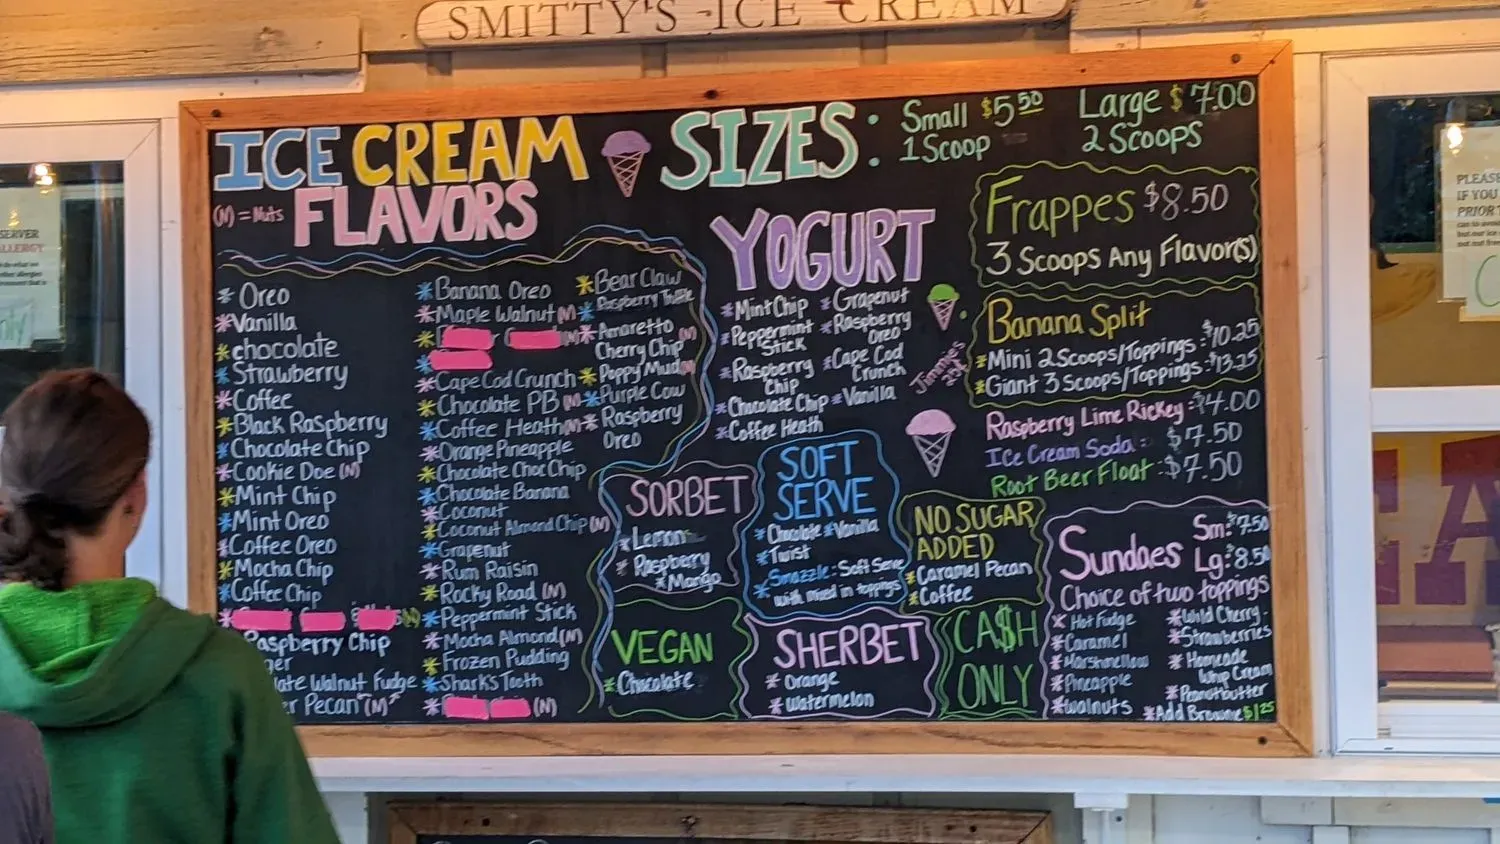 SMITTY'S ICE CREAM
ICE CREAM
FLAVORS
(N) = Nuts
SIZES:
Small $5.50
1 Scoop
Large $7.00
2 Scoops
* Oreo
* Vanilla
* chocolate
* Strawberry
* Coffee
* Black Raspberry
* Chocolate Chip
* Cookie Doe (N)
* Mint Chip
* Mint Oreo
* Coffee Oreo
* Mocha Chip
* Coffee Chip
Raspberry Chip
Walnut Fudge
Pecan (N)
* Banana Oreo
* Maple Walnut (N)
* Cape Cod Crunch
* Chocolate PB (N)
* Coffee Heath (N)
* Orange Pineapple
* Chocolate Choc Chip
* Chocolate Banana
* Coconut
* Coconut Almond Chip (N)
* Grapenut
* Rum Raisin
* Rocky Road (N)
* Peppermint Stick
* Mocha Almond (N)
* Frozen Pudding
* Shark's Tooth
(N)
* Bear Claw
* Raspberry Truffle
* Amaretto (N)
Cherry Chip
* Poppy Mud (N)
* Purple Cow
* Raspberry
Oreo
YOGURT
* Mint Chip
* Peppermint
Stick
* Raspberry
Chip
* Chocolate Chip
* Coffee Heath
* Grapenut
* Raspberry
Oreo
* Cape Cod
Crunch
* Vanilla
Jimmie's
Frappes $8.50
3 Scoops Any Flavor(s)
Banana Split
* Mini 2 Scoops/Toppings: $10.25
* Giant 3 Scoops/Toppings: $13.25
Raspberry Lime Rickey: $4.00
Ice Cream Soda: $7.50
Root Beer Float: $7.50
SORBET
* Lemon
* Raspberry
* Mango
SOFT
SERVE
* Chocolate * Vanilla
* Twist
* Smazzle: Soft Serve
with mixed in toppings
NO SUGAR
ADDED
* Caramel Pecan
* Coffee
VEGAN
* Chocolate
SHERBET
* Orange
* Watermelon
CA$H
ONLY
Sundaes
Sm: $7.50
Lg: $8.50
Choice of two toppings
* Hot Fudge
* Caramel
* Marshmellow
* Pineapple
* Walnuts
* Wild Cherry
* Strawberries
* Homeade
Whip Cream
* Peanutbutter
* Add Brownie $1.25
SERVER
ALLERGY
PLEASE
IF YOU
PRIOR